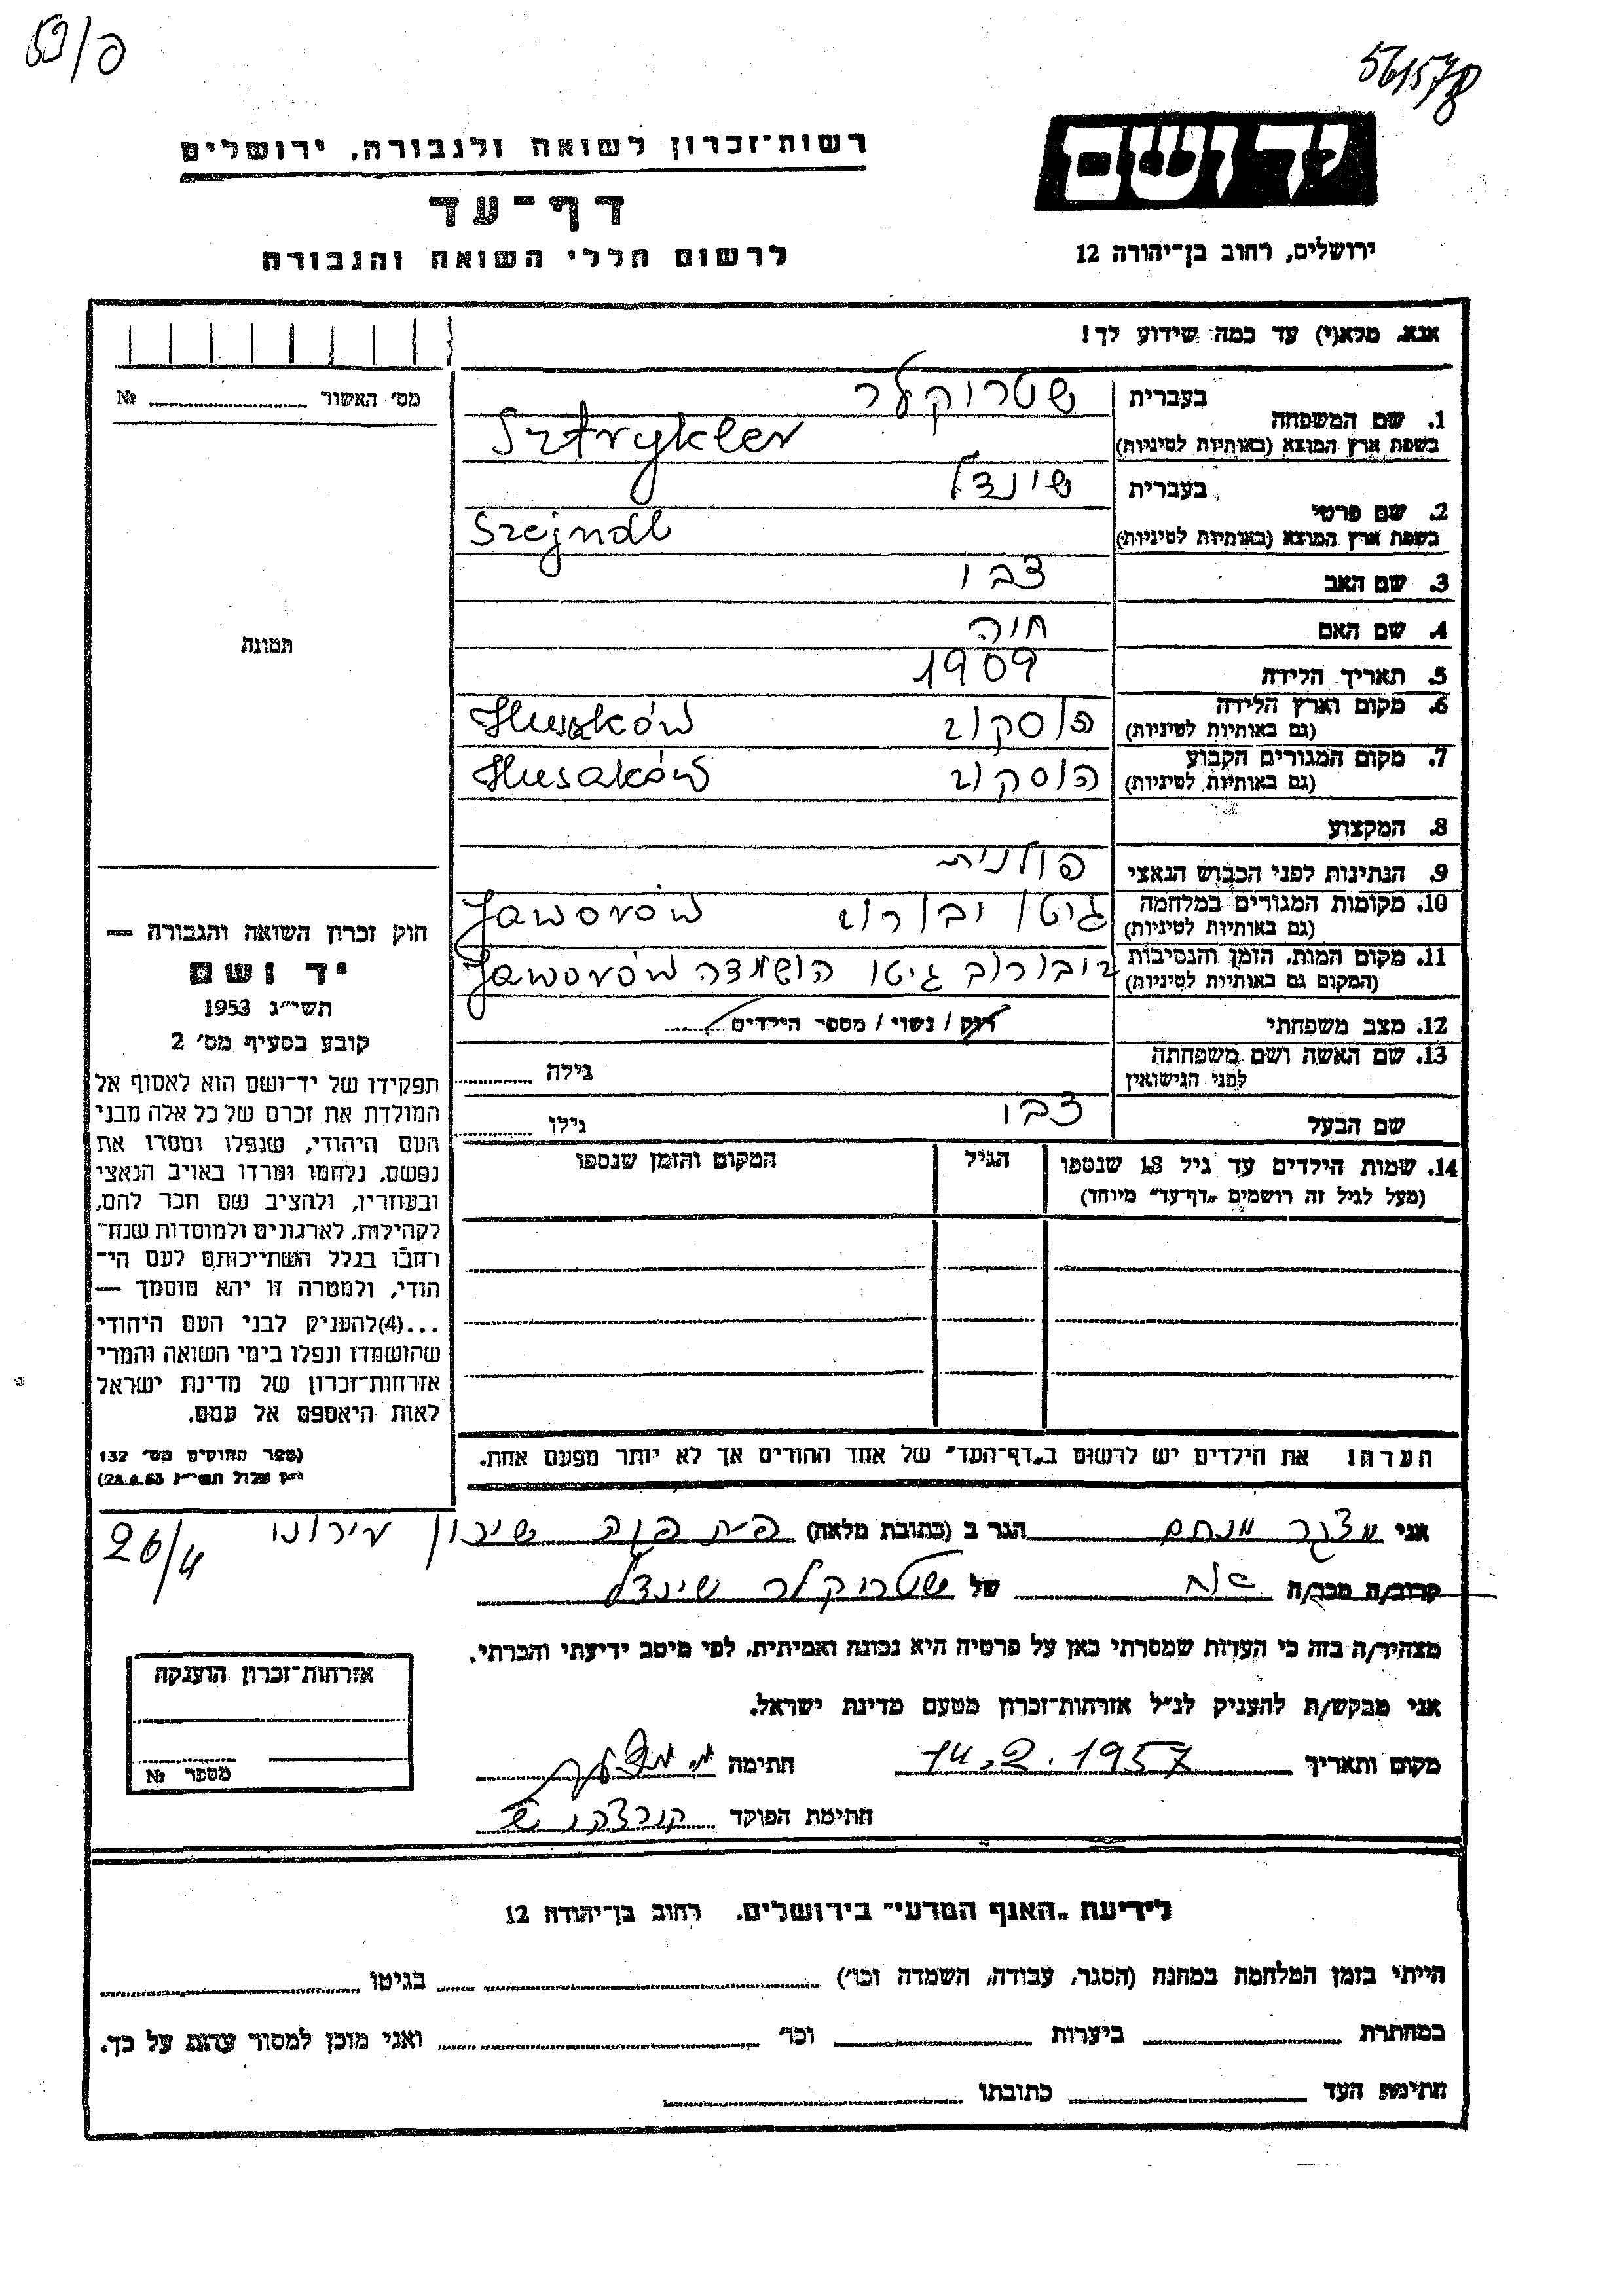 56157
רשות־זכרון לשואה ולגבורה. ירושלים
יד ושם
דף־עד
לרשום חללי השואה והגבורה
ירושלים, רחוב בן־יהודה 12
אנא. מלא(י) עד כמה שידוע לך!
מס׳ האשור № 
1. שם המשפחה בעברית שטרוקלר
בשפת ארץ המוצא (באותיות לטיניות) Sztrykler
2. שם פרטי בעברית שינדל
בשפת ארץ המוצא (באותיות לטיניות) Szejndl
3. שם האב צבי
4. שם האם חיה
תמונה
5. תאריך הלידה 1909
6. מקום וארץ הלידה (גם באותיות לטיניות) הוסקוב
7. מקום המגורים הקבוע (גם באותיות לטיניות) הוסקוב Husaków
8. המקצוע
9. הנתינות לפני הכבוש הנאצי פולנית
10. מקומות המגורים במלחמה (גם באותיות לטיניות) גיטו יבורוב Jaworów
11. מקום המות, הזמן והנסיבות (המקום גם באותיות לטיניות) יבורוב גיטו הושמדה Jaworów
12. מצב משפחתי רוק / נשוי / מספר הילדים
13. שם האשה ושם משפחתה לפני הנישואין גילה
שם הבעל צבי גילו
14. שמות הילדים עד גיל 18 שנספו הגיל המקום והזמן שנספו
(מעל לגיל זה רושמים „דף־עד״ מיוחד)
הערה: את הילדים יש לרשום ב„דף־העד״ של אחד ההורים אך לא יותר מפעם אחת.
חוק זכרון השואה והגבורה —
יד ושם
תשי״ג 1953
קובע בסעיף מס׳ 2
תפקידו של יד־ושם הוא לאסוף אל
המולדת את זכרם של כל אלה מבני
העם היהודי, שנפלו ומסרו את
נפשם, נלחמו ומרדו באויב הנאצי
ובעוזריו, ולהציב שם וזכר להם,
לקהילות, לארגונים ולמוסדות שנח־
רבו בגלל השתייכותם לעם הי־
הודי, ולמטרה זו יהא מוסמך —
...(4)להעניק לבני העם היהודי
שהושמדו ונפלו בימי השואה והמרי
אזרחות־זכרון של מדינת ישראל
לאות היאספם אל עמם.
(ספר החוקים מס׳ 132
י״ז אלול תשי״ג 28.8.53)
אני מנחם הגר ב (כתובת מלאה) פתח תקוה שיכון
26/4
קרוב/ה מכר/ה של שטריקלר שינדל
מצהיר/ה בזה כי העדות שמסרתי כאן על פרטיה היא נכונה ואמיתית, לפי מיטב ידיעתי והכרתי.
אני מבקש/ת להעניק לנ״ל אזרחות־זכרון מטעם מדינת ישראל.
מקום ותאריך 14.2.1957 חתימה
חתימת הפוקד
אזרחות־זכרון הוענקה
מספר №
לידיעת „האגף המדעי״ בירושלים. רחוב בן־יהודה 12
הייתי בזמן המלחמה במחנה (הסגר, עבודה, השמדה וכו׳) בגיטו
במחתרת ביערות וכו׳ ואני מוכן למסור עדות על כך.
חתימת העד כתובתו